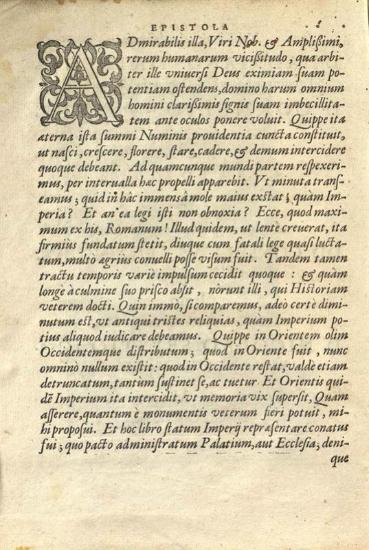 EPISTOLA
ADmirabilis illa, Viri Nob. & Amplißimi,
rerum humanarum vicißitudo, qua arbi-
ter ille vniuersi Deus eximiam suam po-
tentiam ostendens, domino harum omnium
homini clarißimis signis suam imbecillita-
tem ante oculos ponere voluit. Quippe ita
æterna ista summi Numinis prouidentia cuncta constituit,
ut nasci, crescere, florere, stare, cadere, & demum intercidere
quoque debeant. Ad quamcunque mundi partem respexeri-
mus, per interualla hæc propelli apparebit. Vt minuta trans-
eamus; quid in hac immensâ mole maius exstat, quàm Im-
peria? Et an ea legi isti non obnoxia? Ecce, quod maxi-
mum ex his, Romanum! Illud quidem, ut lentè creuerat, ita
firmius fundatum stetit, diuque cum fatali lege quasi lucta-
tum, multò ægrius conuelli posse visum fuit. Tandem tamen
tractu temporis variè impulsum cecidit quoque: & quàm
longè à culmine suo prisco absit, nôrunt illi, qui Historiam
veterem docti. Quin immò, si comparemus, adeò certe dimi-
nutum est, vt antiqui tristes reliquias, quàm Imperium po-
tius aliquod iudicare debeamus. Quippe in Orientem olim
Occidentemque distributum; quod in Oriente fuit, nunc
omninò nullum existit: quod in Occidente restat, valde etiam
detruncatum, tantùm sustinet se, ac tuetur. Et Orientis qui-
dē Imperium ita intercidit, vt memoria vix supersit, Quam
asserere, quantum è monumentis veterum fieri potuit, mi-
hi proposui. Et hoc libro statum Imperij repræsentare conatus
fui; quo pacto administratum Palatium, aut Ecclesia; deni-
que